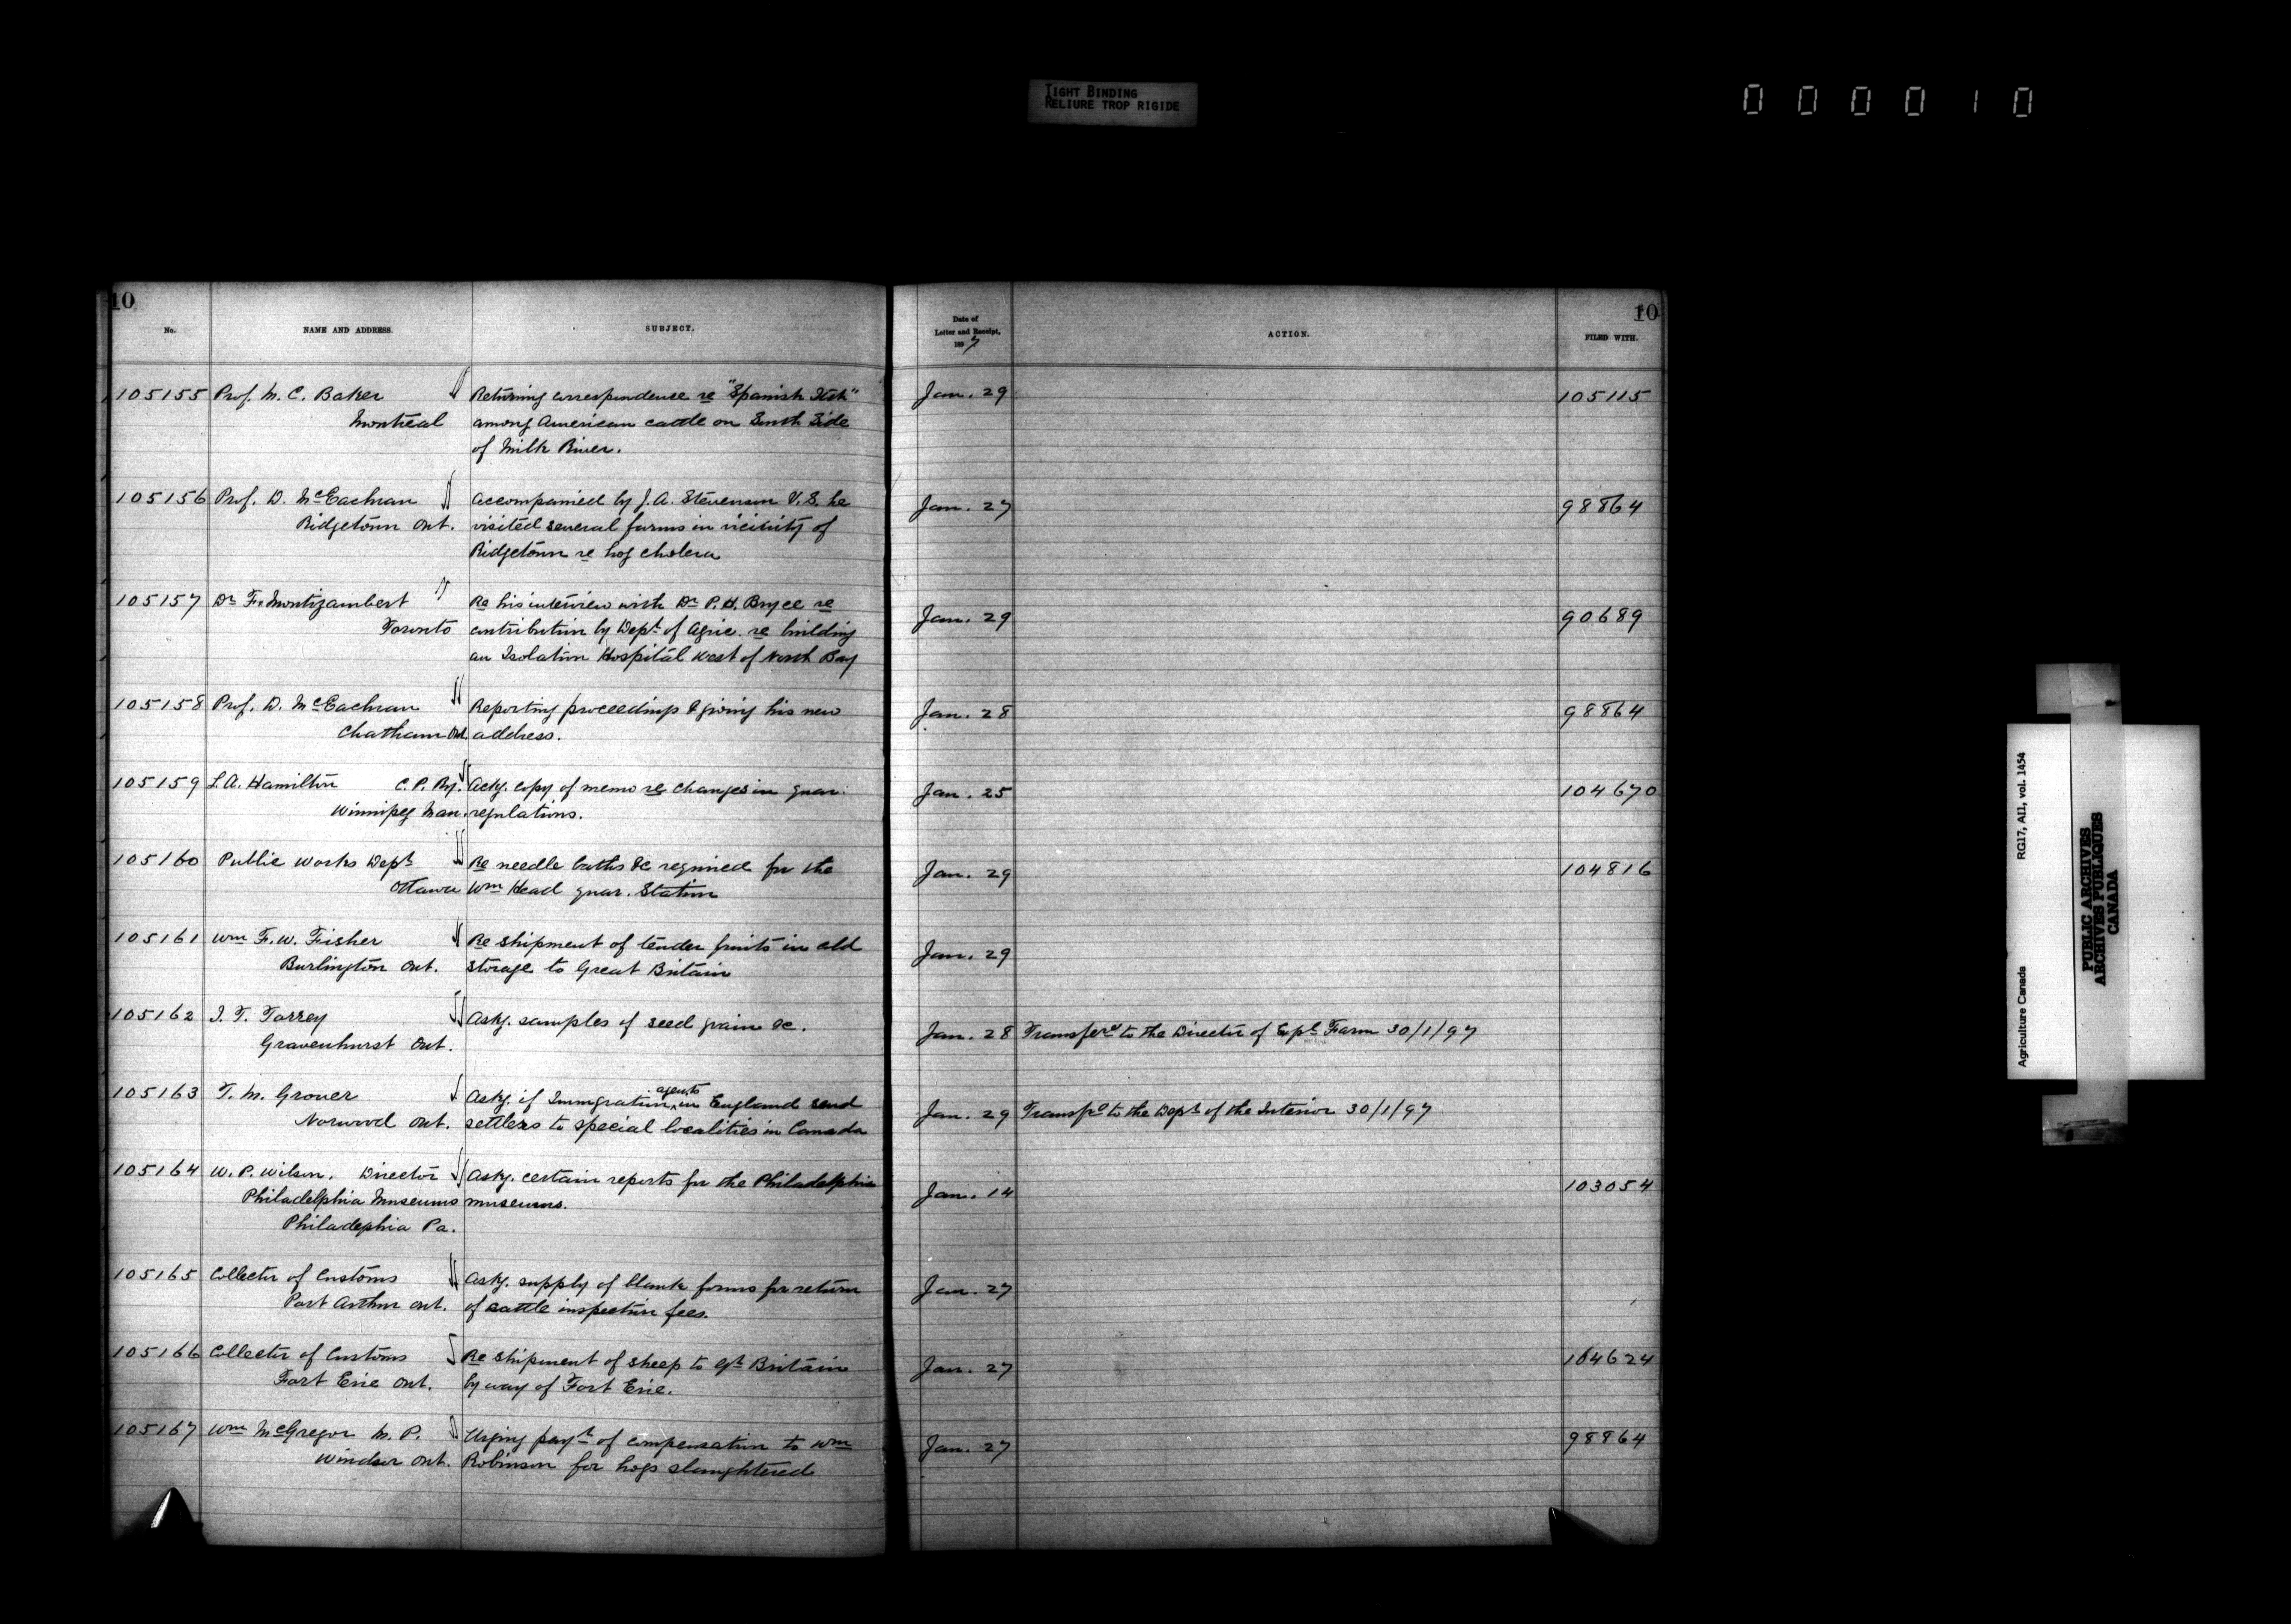 TIGHT BINDING
RELIURE TROP RIGIDE
000010
10
No. NAME AND ADDRESS. SUBJECT. Date of Letter and Receipt, 1897 ACTION. FILED WITH.
10
105155 Prof. M. C. Baker Returning correspondence re "Spanish Itch" Jan. 29 105115
Montreal among American cattle on South Side
of Milk River.
105156 Prof. D. McEachran Accompanied by J. A. Stevenson V.S. he Jan. 27 98864
Ridgetown Ont. visited several farms in vicinity of
Ridgetown re hog cholera
105157 Dr F. Montizambert Re his interview with Dr P. H. Bryce re Jan. 29 90689
Toronto contribution by Dept of Agric. re building
an Isolation Hospital West of North Bay
105158 Prof. D. McEachran Reporting proceedings & giving his new Jan. 28 98864
Chatham Ont. address.
105159 L. A. Hamilton C. P. Ry. Ackg. copy of memo re changes in quar. Jan. 25 104670
Winnipeg Man. regulations.
105160 Public Works Dept Re needle baths &c required for the Jan. 29 104816
Ottawa Wm Head quar. Station
105161 Wm F. W. Fisher Re shipment of tender fruits in cold Jan. 29
Burlington Ont. storage to Great Britain
105162 J. T. Torrey Askg. samples of seed grain &c. Jan. 28 Transferd to the Director of Expl Farm 30/1/97
Gravenhurst Ont.
105163 T. M. Grover Askg. if Immigration agents in England send Jan. 29 Transfd to the Dept of the Interior 30/1/97
Norwood Ont. settlers to special localities in Canada
105164 W. P. Wilson, Director Askg. certain reports for the Philadelphia Jan. 14 103054
Philadelphia Museums museums.
Philadephia Pa.
105165 Collector of Customs Askg. supply of blank forms for return Jan. 27
Port Arthur Ont. of cattle inspection fees.
105166 Collector of Customs Re shipment of sheep to Gt Britain Jan. 27 104624
Fort Erie Ont. by way of Fort Erie.
105167 Wm McGregor M. P. Urging payt of compensation to Wm Jan. 27 98864
Windsor Ont. Robinson for hogs slaughtered
Agriculture Canada RG17, AI1, vol. 1454
PUBLIC ARCHIVES
ARCHIVES PUBLIQUES
CANADA